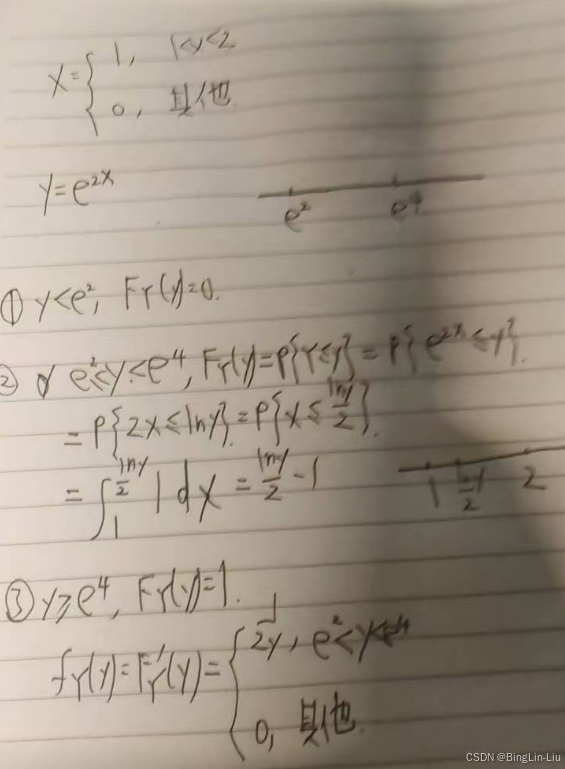 X= { 1, 1<x<2
0, 其他
Y=e^{2X}
e² e⁴
① y<e², F_Y(y)=0.
② e²≤y<e⁴, F_Y(y)=P{Y≤y}=P{e^{2X}≤y}.
=P{2X≤lny}=P{X≤lny/2}.
=∫_1^{lny/2} 1 dx = lny/2 -1
1 lny/2 2
③ y≥e⁴, F_Y(y)=1.
f_Y(y)=F_Y'(y)= { 1/2y, e²<y<e⁴
0, 其他.
CSDN @BingLin-Liu